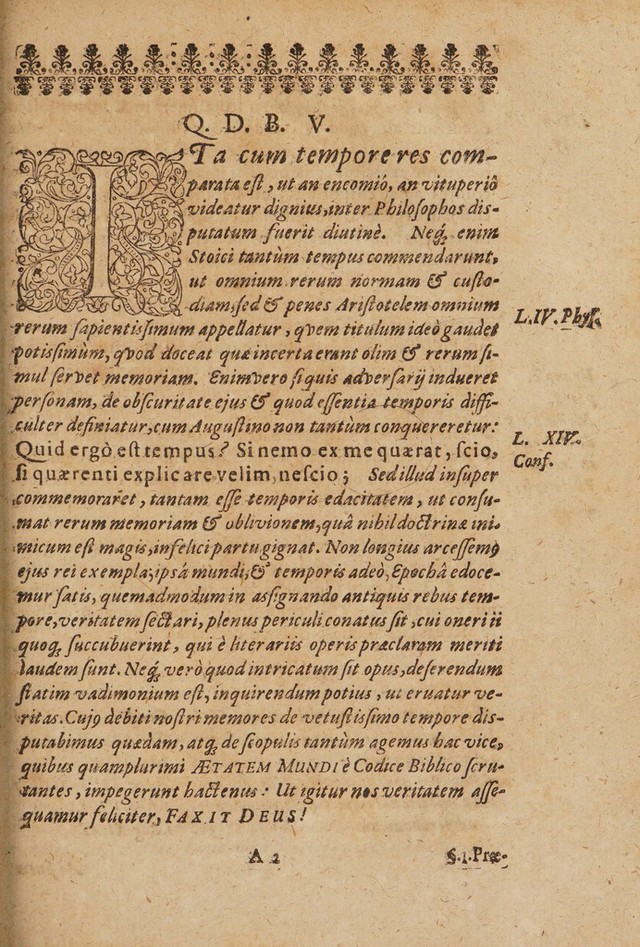 Q. D. B. V.
ITa cum tempore res com-
parata eſt, ut an encomió, an vituperió
videatur dignius, inter Philoſophos diſ-
putatum fuerit diutinè. Neq́; enim
Stoici tantùm tempus commendarunt,
ut omnium rerum normam & cuſto-
diam, ſed & penes Ariſtotelem omnium
rerum ſapientisſimum appellatur, qvem titulum ideò gaudet
L.IV. Phyſ.
potisſimùm, qvod doceat quæ incerta erant olim & rerum ſi-
mul ſervet memoriam. Enimvero ſi quis adverſarij indueret
perſonam, de obſcuritate ejus & quod esſentia temporis diffi-
culter definiatur, cum Auguſtino non tantùm conquereretur:
L. XIV.
Conf.
Quid ergò eſt tempus? Si nemo ex me quærat, ſcio,
ſi quærenti explicare velim, neſcio; Sed illud inſuper
commemoraret, tantam esſe temporis edacitatem, ut conſu-
mat rerum memoriam & oblivionem, quâ nihil doctrinæ ini-
micum eſt magis, infelici partu gignat. Non longius arcesſemꝰ
ejus rei exempla; ipsá mundi, & temporis adeò, Epochâ edoce-
mur ſatis, quemadmodum in asſignando antiquis rebus tem-
pore, veritatem ſectari, plenus periculi conatus ſit, cui oneri ii
quoq; ſuccubuerint, qui è literariis operis præclaram meriti
laudem ſunt. Neq́; verò quod intricatum ſit opus, deſerendum
ſtatim vadimonium eſt, inquirendum potius, ut eruatur ve-
ritas. Cujꝰ debiti noſtri memores de vetuſtisſimo tempore diſ-
putabimus quædam, atq; de ſcopulis tantùm agemus hac vice,
quibus quamplurimi ÆTATEM MUNDI è Codice Biblico ſcru-
tantes, impegerunt hactenus: Ut igitur nos veritatem asſe-
quamur feliciter, FAXIT DEUS!
A 2
§.1. Præ-